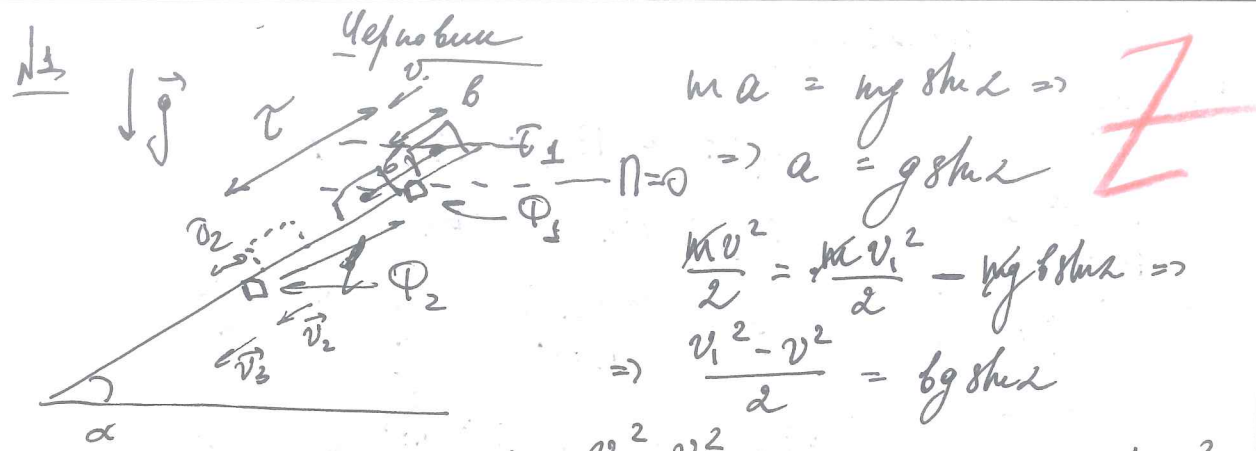 Черновик
№1
g⃗
τ
v
b
v1
Φ1
П=0
v2
l
Φ2
v⃗2
v⃗3
α
ma = mg sin α =>
=> a = g sin α
Z
mv²/2 = mv₁²/2 − mg b sin α =>
=> (v₁² − v²)/2 = b g sin α